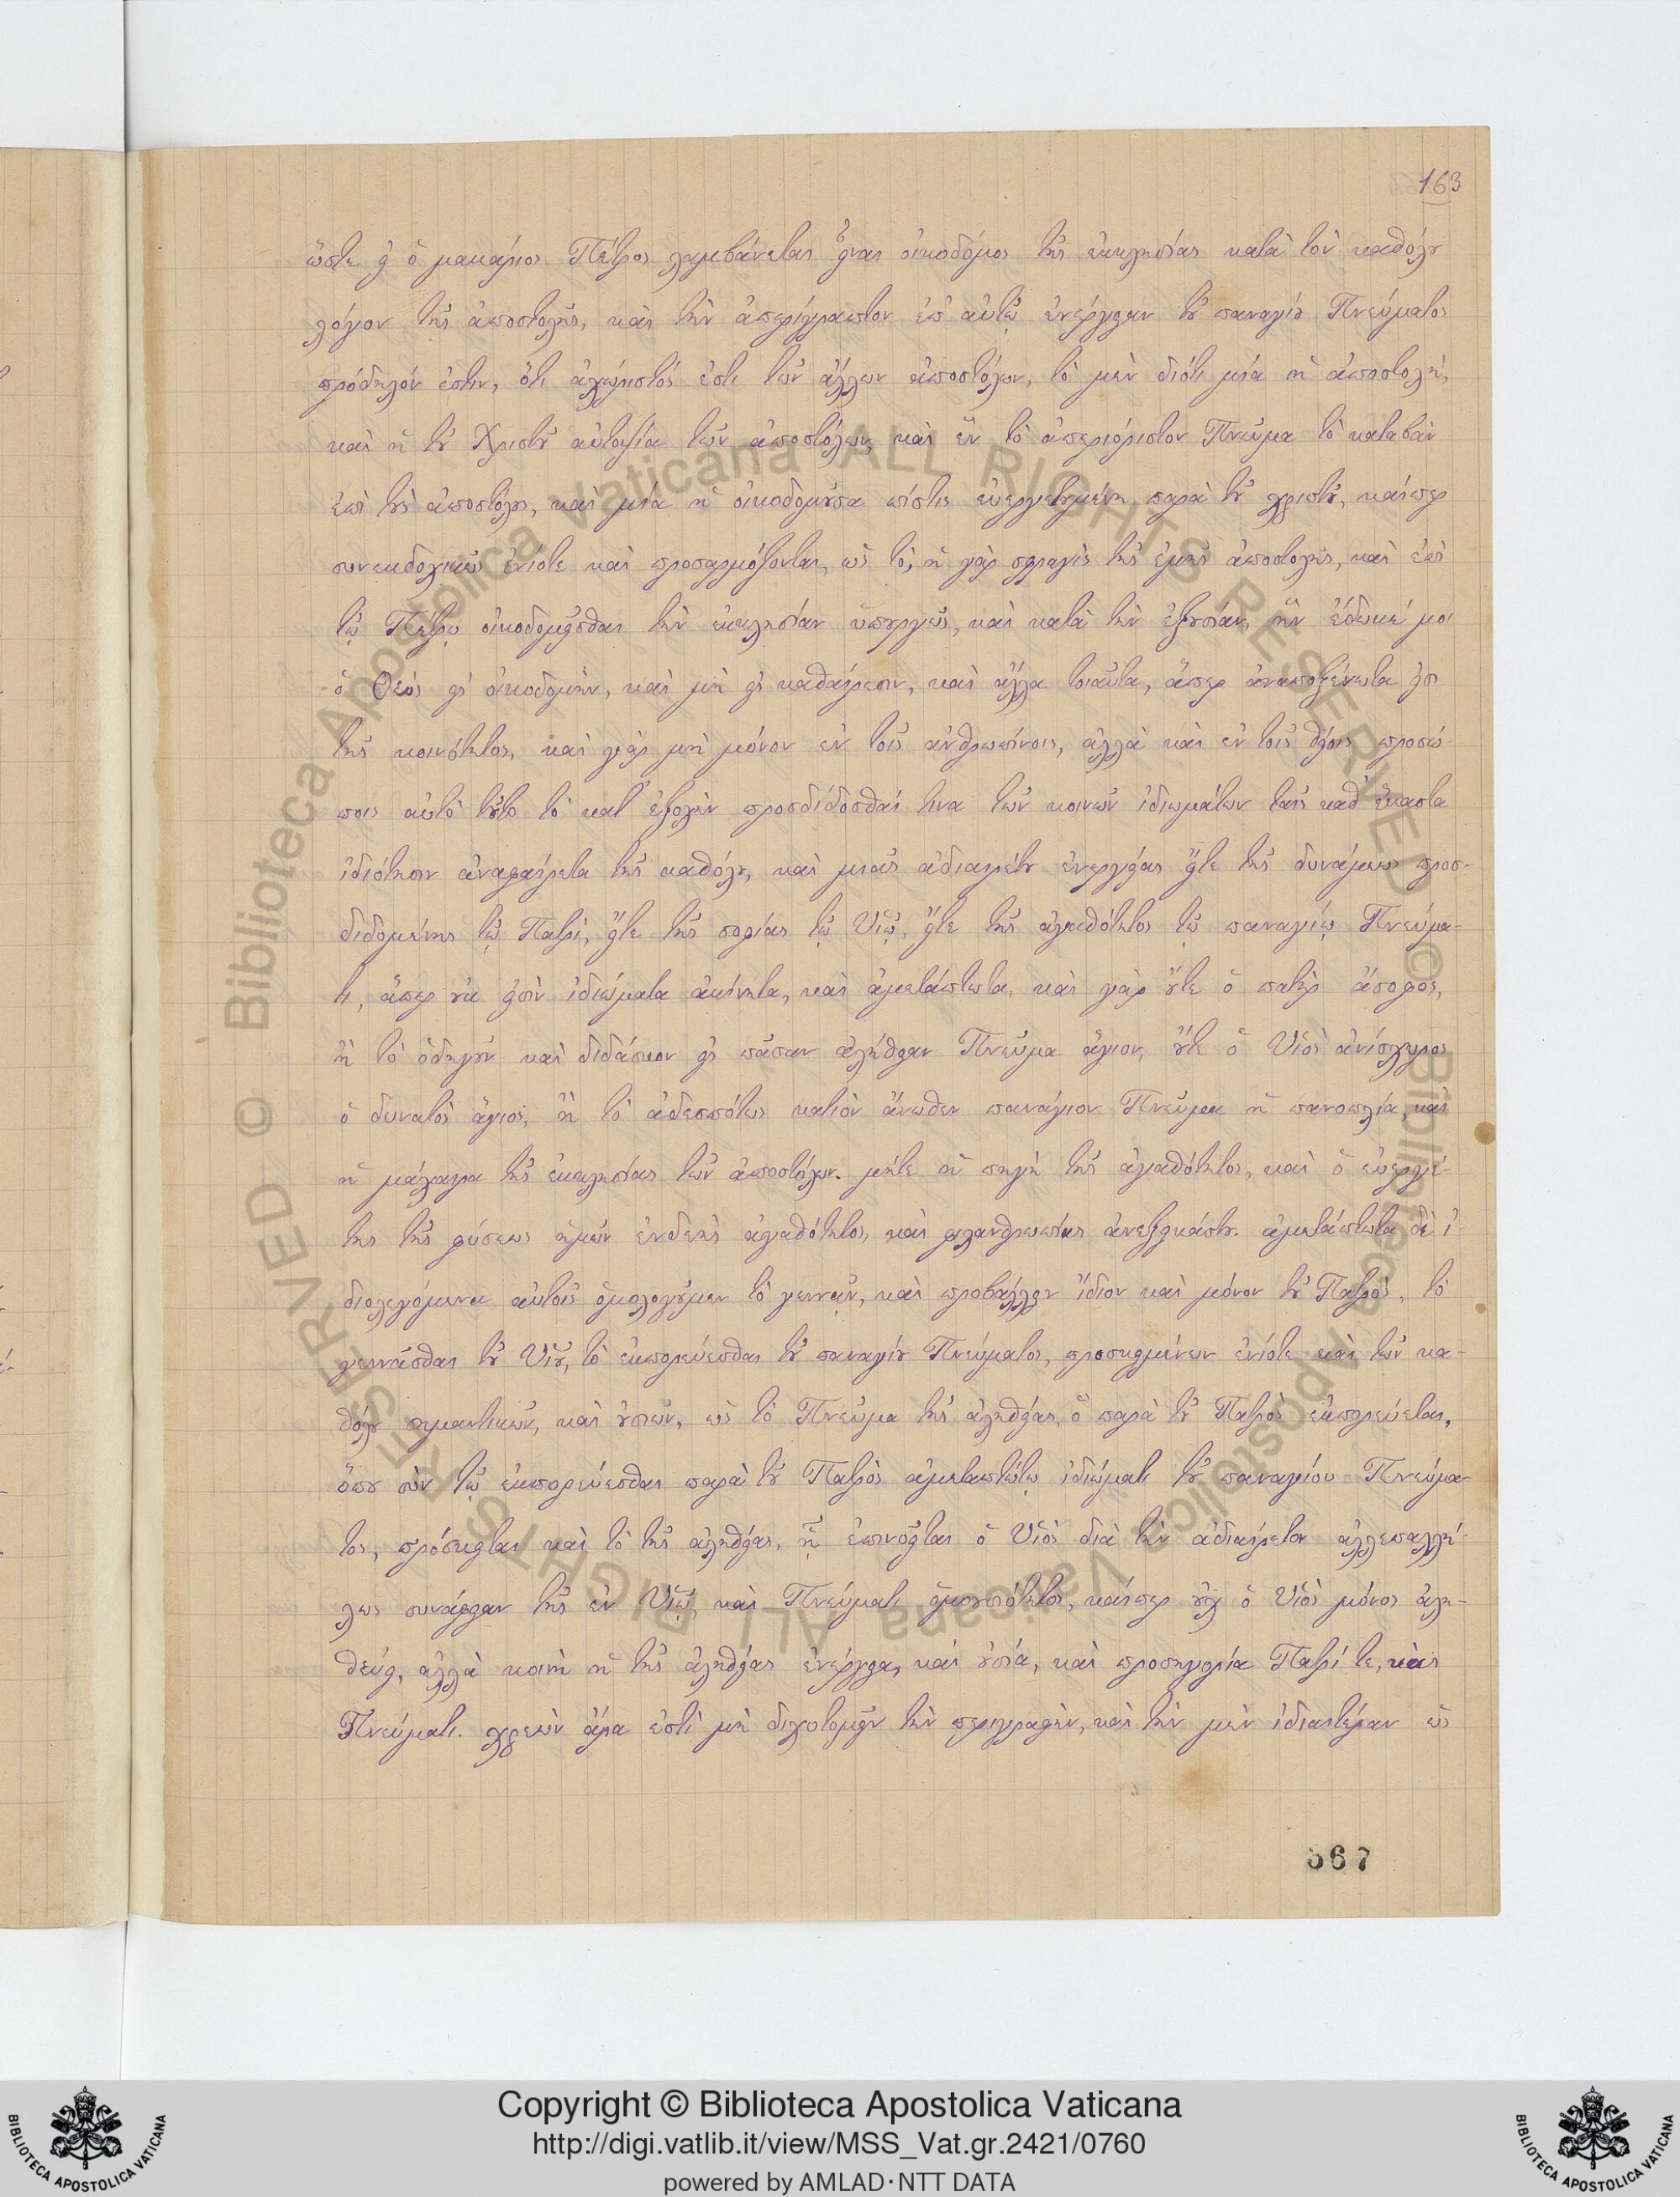 163
ὥστε εἰ ὁ μακάριος Πέτρος λαμβάνεται εἶναι οἰκοδόμος τῆς ἐκκλησίας κατὰ τὸν καθόλου
λόγον τῆς ἀποστολῆς, καὶ τὴν ἀπερίγραπτον ἐπ' αὐτῷ ἐνέργειαν τοῦ παναγίου Πνεύματος
πρόδηλόν ἐστιν, ὅτι ἀχώριστός ἐστι τῶν ἄλλων ἀποστόλων, τὸ μὲν διότι μία ἡ ἀποστολὴ,
καὶ ἡ τοῦ Χριστοῦ αὐτοψία τῶν ἀποστόλων, καὶ ἓν τὸ ἀπεριόριστον Πνεῦμα τὸ καταβὰν
ἐπὶ τοὺς ἀποστόλους, καὶ μία ἡ οἰκοδομοῦσα πίστις εὐεργετουμένη παρὰ τοῦ χριστοῦ, καίπερ
συνεκδοχικῶς ἐνίοτε καὶ προσαρμόζονται, ὡς τὸ, ἡ γὰρ σφραγὶς τῆς ἐμῆς ἀποστολῆς, καὶ ἐπὶ
τῷ Πέτρῳ οἰκοδομεῖσθαι τὴν ἐκκλησίαν ὑπουργῶς, καὶ κατὰ τὴν ἐξουσίαν, ἣν ἔδωκέ μοι
ὁ Θεός εἰς οἰκοδομὴν, καὶ μὴ εἰς καθαίρεσιν, καὶ ἄλλα τοιαῦτα, ἅπερ ἀναποξένωτα εἰσι
τῆς κοινότητος, καὶ γὰρ μὴ μόνον ἐν τοῖς ἀνθρωπίνοις, ἀλλὰ καὶ ἐν τοῖς θείοις προσώ-
ποις αὐτὸ τοῦτο τὸ κατ' ἐξοχὴν προσδίδοσθαί τινα τῶν κοινῶν ἰδιωμάτων ταῖς καθ' ἕκαστα
ἰδιότησιν ἀναφαίρετα τῆς καθόλου, καὶ μιᾶς ἀδιαιρέτου ἐνεργείας εἴτε τῆς δυνάμεως προσ-
διδομένης τῷ Πατρὶ, εἴτε τῆς σοφίας τῷ Υἱῷ, εἴτε τῆς ἀγαθότητος τῷ παναγίῳ Πνεύμα-
τι, ἅπερ οὐκ εἰσὶν ἰδιώματα ἀκίνητα, καὶ ἀμετάπτωτα, καὶ γὰρ οὔτε ὁ πατὴρ ἄσοφος,
ἢ τὸ ὁδηγοῦν καὶ διδάσκον εἰς πᾶσαν ἀλήθειαν Πνεῦμα ἅγιον, οὔτε ὁ Υἱὸς ἀνίσχυρος
ὁ δυνατὸς ἅγιος, ἢ τὸ ἀδεσπότως κατιὸν ἄνωθεν πανάγιον Πνεῦμα ἡ πανοπλία, καὶ
ἡ μάχαιρα τῆς ἐκκλησίας τῶν ἀποστόλων. μήτε ἡ πηγὴ τῆς ἀγαθότητος, καὶ ὁ εὐεργέ-
της τῆς φύσεως ἡμῶν ἐνδεὴς ἀγαθότητος, καὶ φιλανθρωπίας ἀνεξεικάστου. ἀμετάπτωτα δὲ ἰ-
διολεγόμενα αὐτοῖς ὁμολογοῦμεν τὸ γεννᾷν, καὶ προβάλλειν ἴδιον καὶ μόνον τοῦ Πατρὸς, τὸ
γεννᾶσθαι τοῦ Υἱοῦ, τὸ ἐκπορεύεσθαι τοῦ παναγίου Πνεύματος, προσκειμένων ἐνίοτε καὶ τῶν κα-
θόλου σημαντικῶν, καὶ οὐσιῶν, ὡς τὸ Πνεῦμα τῆς ἀληθείας, ὃ παρὰ τοῦ Πατρὸς ἐκπορεύεται,
ὅπου σὺν τῷ ἐκπορεύεσθαι παρὰ τοῦ Πατρὸς ἀμεταπτώτῳ ἰδιώματι τοῦ παναγίου Πνεύμα-
τος, πρόσκειται καὶ τὸ τῆς ἀληθείας, ᾗ ἐπινοεῖται ὁ Υἱὸς διὰ τὴν ἀδιαίρετον ἀλλεπαλλή-
λως συνάφειαν τῆς ἐν Υἱῷ, καὶ Πνεύματι ὁμοουσιότητος, καίπερ οὐχ ὁ Υἱὸς μόνος ἀλη-
θεύει, ἀλλὰ κοινὴ ἡ τῆς ἀληθείας ἐνέργεια, καὶ οὐσία, καὶ προσηγορία Πατρί τε, καὶ
Πνεύματι. χρεὼν ἄρα ἐστὶ μὴ διχοτομεῖν τὴν περιγραφὴν, καὶ τὴν μὲν ἰδιαιτέραν ὡς
367
© Biblioteca Apostolica Vaticana ALL RIGHTS RESERVED
© Biblioteca Apostolica Vaticana ALL RIGHTS RESERVED
Copyright © Biblioteca Apostolica Vaticana
http://digi.vatlib.it/view/MSS_Vat.gr.2421/0760
powered by AMLAD·NTT DATA
BIBLIOTECA APOSTOLICA VATICANA
BIBLIOTECA APOSTOLICA VATICANA